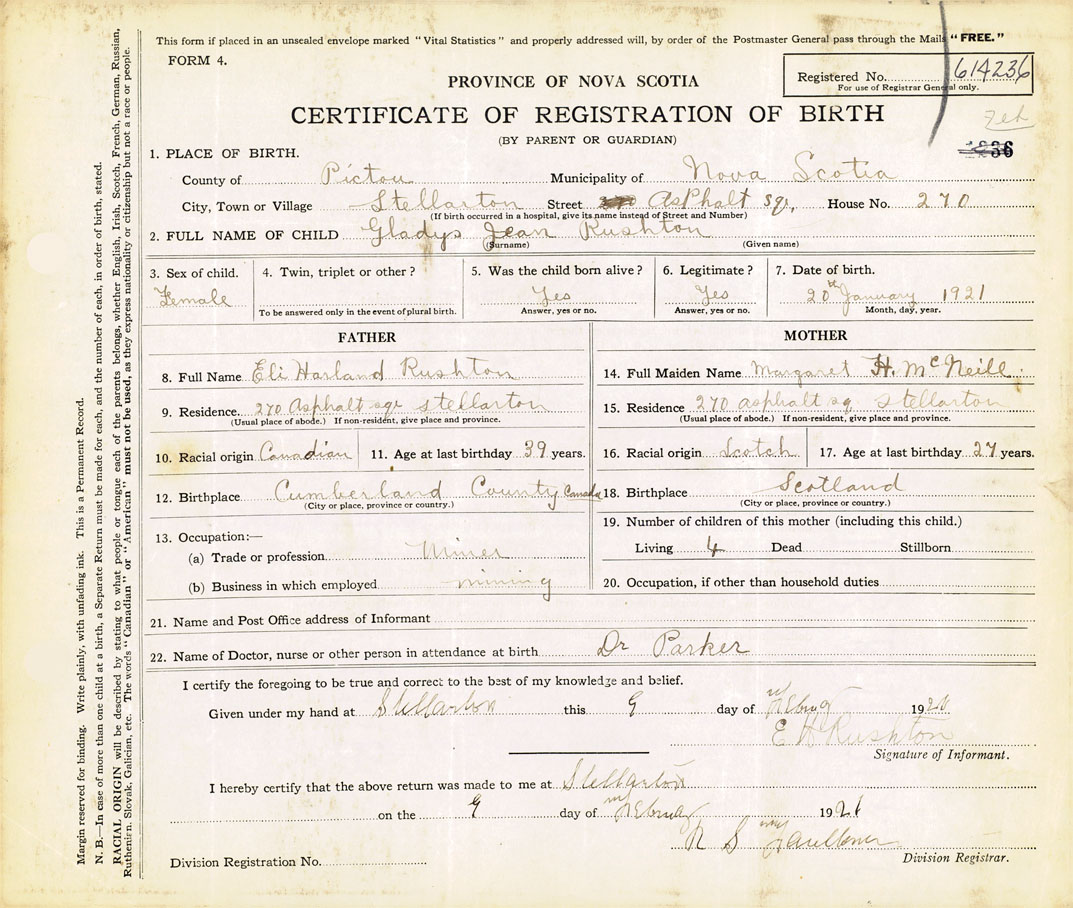 This form if placed in an unsealed envelope marked "Vital Statistics" and properly addressed will, by order of the Postmaster General pass through the Mails "FREE."
FORM 4.
Registered No. 614236
For use of Registrar General only.
PROVINCE OF NOVA SCOTIA
CERTIFICATE OF REGISTRATION OF BIRTH
(BY PARENT OR GUARDIAN)
1. PLACE OF BIRTH.
County of Pictou Municipality of Nova Scotia
City, Town or Village Stellarton Street Asphalt sqr, House No. 270
(If birth occurred in a hospital, give its name instead of Street and Number)
2. FULL NAME OF CHILD Gladys Jean Rushton
(Surname) (Given name)
3. Sex of child. 4. Twin, triplet or other? 5. Was the child born alive? 6. Legitimate? 7. Date of birth.
Female Yes Yes 20th January 1921
To be answered only in the event of plural birth. Answer, yes or no. Answer, yes or no. Month, day, year.
FATHER
8. Full Name Eli Harland Rushton
9. Residence. 270 Asphalt sqr Stellarton
(Usual place of abode.) If non-resident, give place and province.
10. Racial origin Canadian 11. Age at last birthday 39 years.
12. Birthplace Cumberland County Canada
(City or place, province or country.)
13. Occupation:—
(a) Trade or profession Miner
(b) Business in which employed mining
MOTHER
14. Full Maiden Name Margaret H. McNeill
15. Residence 270 asphalt sq Stellarton
(Usual place of abode.) If non-resident, give place and province.
16. Racial origin Scotch 17. Age at last birthday 27 years.
18. Birthplace Scotland
(City or place, province or country.)
19. Number of children of this mother (including this child.)
Living 4 Dead Stillborn
20. Occupation, if other than household duties
21. Name and Post Office address of Informant
22. Name of Doctor, nurse or other person in attendance at birth Dr Parker
I certify the foregoing to be true and correct to the best of my knowledge and belief.
Given under my hand at Stellarton this 9 day of 1921
E H Rushton
Signature of Informant.
I hereby certify that the above return was made to me at Stellarton
on the 9 day of 1921
Faulkner
Division Registrar.
Division Registration No.
Margin reserved for binding. Write plainly, with unfading ink. This is a Permanent Record.
N. B.—In case of more than one child at a birth, a Separate Return must be made for each, and the number of each, in order of birth, stated.
RACIAL ORIGIN will be described by stating to what people or tongue each of the parents belongs, whether English, Irish, Scotch, French, German, Russian,
Ruthenian, Slovak, Galician, etc. The words "Canadian" or "American" must not be used, as they express nationality or citizenship but not a race or people.